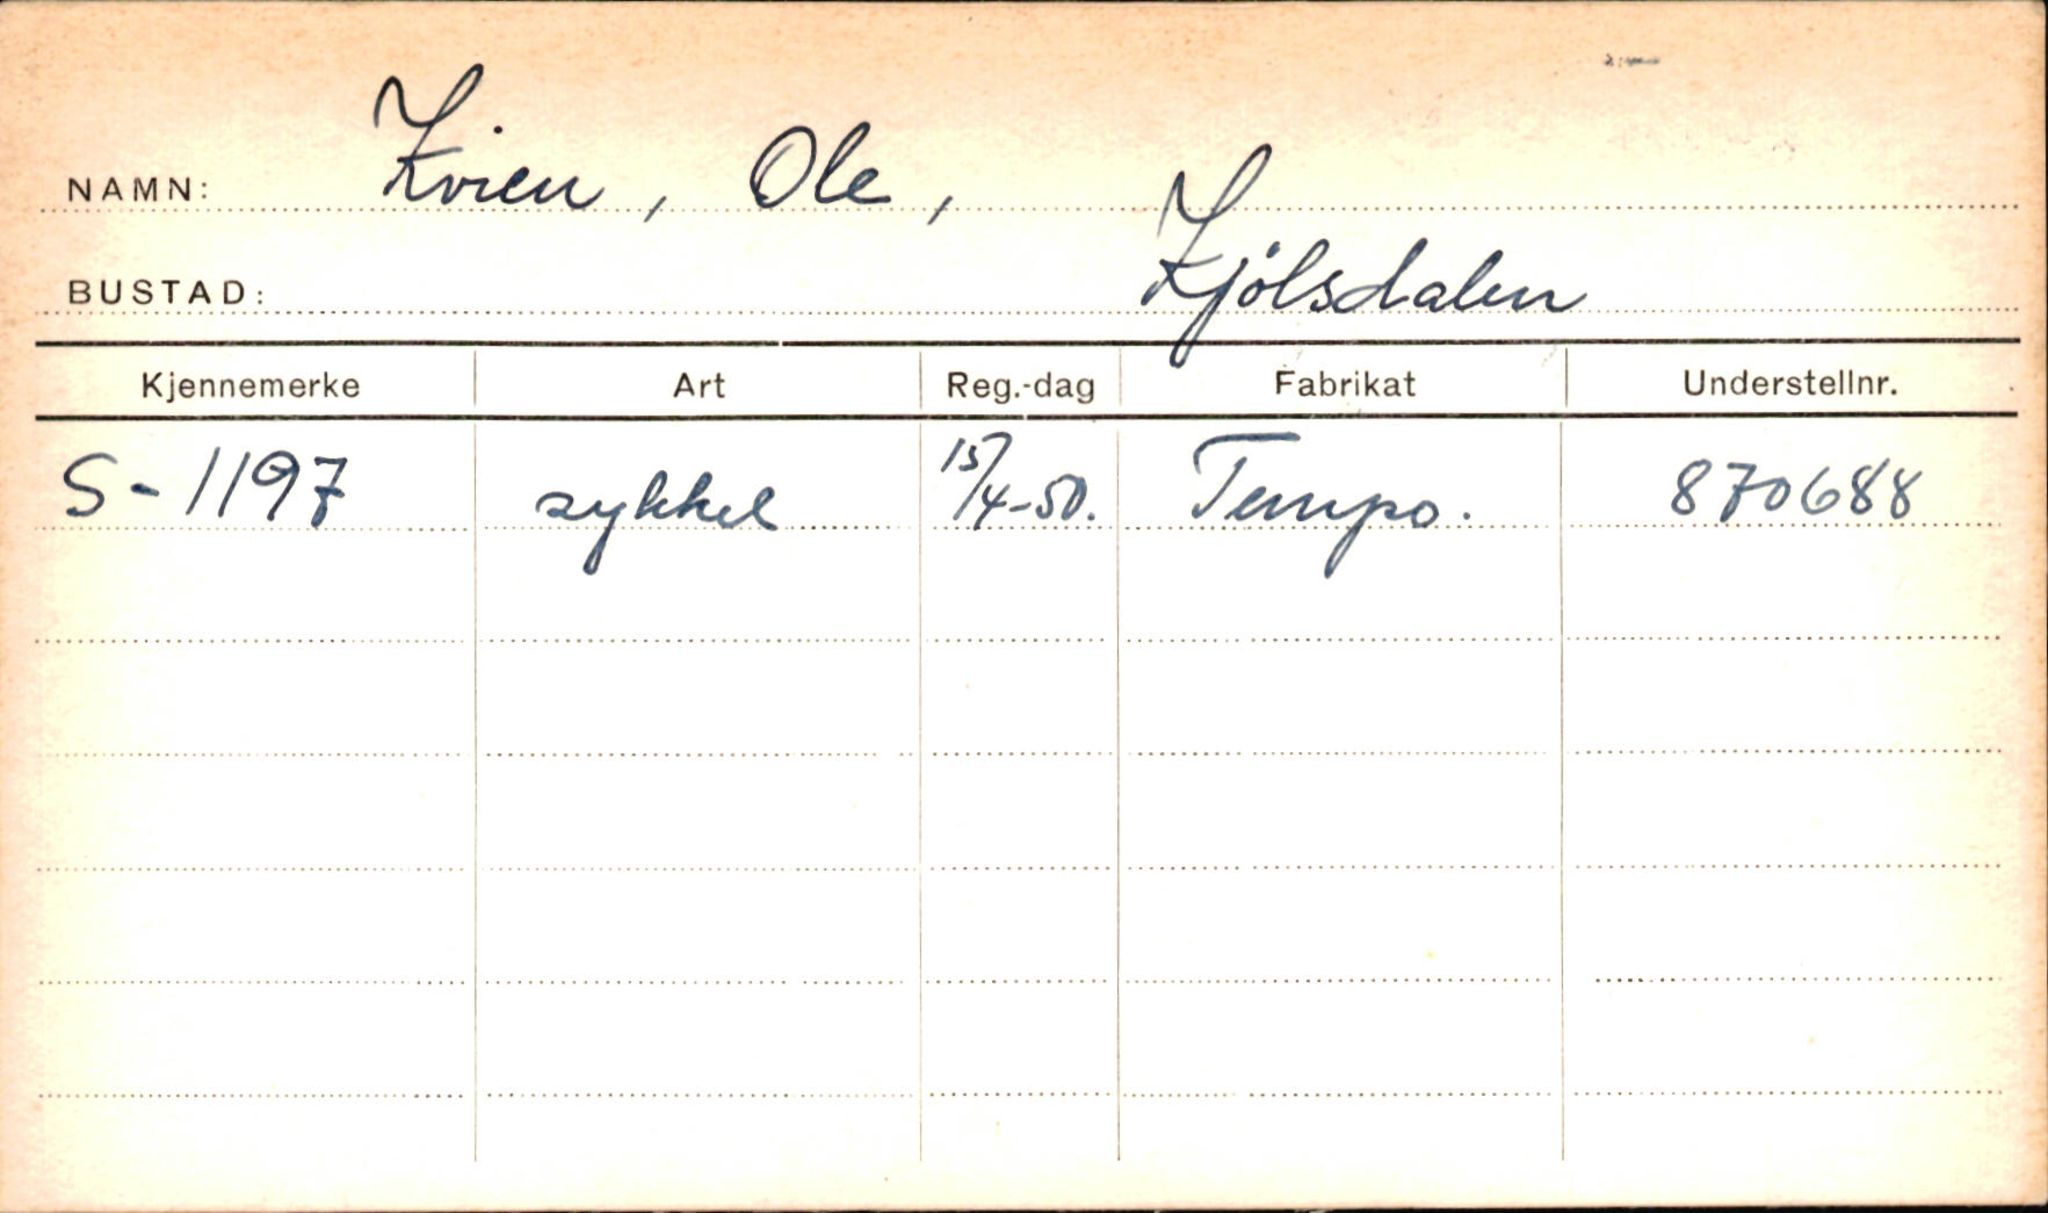 NAMN: Kvien, Ole,
BUSTAD: Kjölsdalen
Kjennemerke Art Reg.-dag Fabrikat Understellnr.
S-1197 sykkel 15/4-50. Tempo. 870688